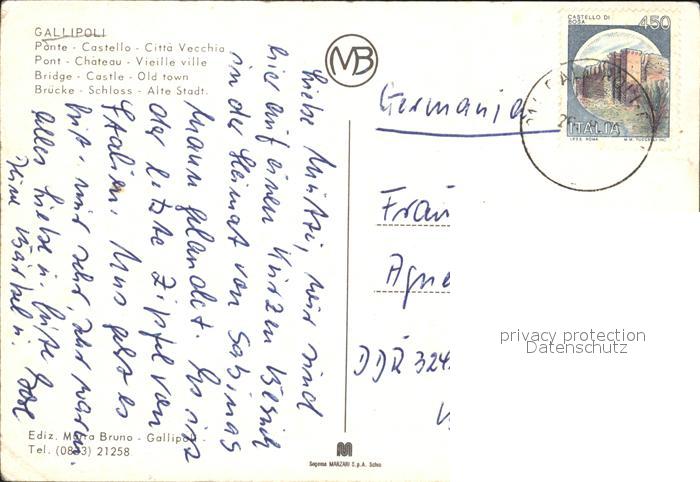 GALLIPOLI
Ponte - Castello - Città Vecchia
Pont - Château - Vieille ville
Bridge - Castle - Old town
Brücke - Schloss - Alte Stadt.
MB
CASTELLO DI ROSA
450
ITALIA
I.P.Z.S. ROMA
Germania
Frau
Agne
DDR 324
privacy protection
Datenschutz
Liebe Mutti, wir sind
hier auf einen kurzen Besuch
in der Heimat von Sabinas
Mann gelandet. Es ist
der letzte Zipfel von
Italien. Uns geht es
gut. mir sehr, sehr warm.
Alles Liebe u. Gute
Deine Bärbel u.
Ediz. Marra Bruno - Gallipoli -
Tel. (0833) 21258
Segema MANZARI S.p.A. Schio